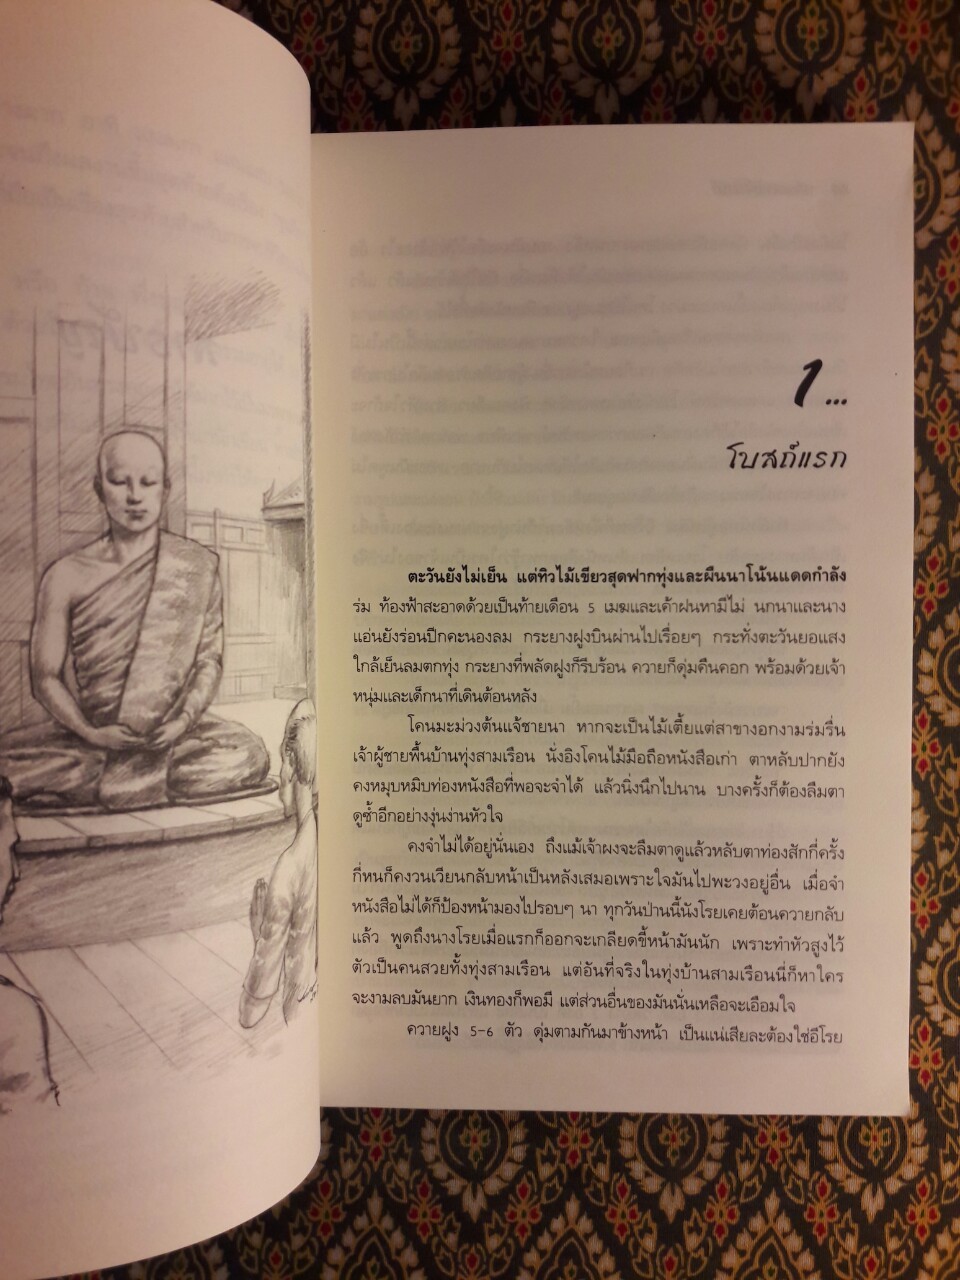 1...
โบสถ์แรก
ตะวันยังไม่เย็น แต่ทิวไม้เขียวสุดฟากทุ่งและผืนนาโน้นแดดกำลัง
ร่ม ท้องฟ้าสะอาดด้วยเป็นท้ายเดือน 5 เมฆและเค้าฝนหามีไม่ นกนาและนาง
แอ่นยังร่อนปีกคะนองลม กระยางฝูงบินผ่านไปเรื่อยๆ กระทั่งตะวันยอแสง
ใกล้เย็นลมตกทุ่ง กระยางที่พลัดฝูงก็รีบร้อน ควายก็ดุ่มคืนคอก พร้อมด้วยเจ้า
หนุ่มและเด็กนาที่เดินต้อนหลัง
โคนมะม่วงต้นแจ้ชายนา หากจะเป็นไม้เตี้ยแต่สาขางอกงามร่มรื่น
เจ้าผู้ชายพื้นบ้านทุ่งสามเรือน นั่งอิงโคนไม้มือถือหนังสือเก่า ตาหลับปากยัง
คงหมุบหมิบท่องหนังสือที่พอจะจำได้ แล้วนิ่งนึกไปนาน บางครั้งก็ต้องลืมตา
ดูซ้ำอีกอย่างงุ่นง่านหัวใจ
คงจำไม่ได้อยู่นั่นเอง ถึงแม้เจ้าผงจะลืมตาดูแล้วหลับตาท่องสักกี่ครั้ง
กี่หนก็คงวนเวียนกลับหน้าเป็นหลังเสมอเพราะใจมันไปพะวงอยู่อื่น เมื่อจำ
หนังสือไม่ได้ก็ป้องหน้ามองไปรอบๆ นา ทุกวันป่านนี้นังโรยเคยต้อนควายกลับ
แล้ว พูดถึงนางโรยเมื่อแรกก็ออกจะเกลียดขี้หน้ามันนัก เพราะทำหัวสูงไว้
ตัวเป็นคนสวยทั้งทุ่งสามเรือน แต่อันที่จริงในทุ่งบ้านสามเรือนนี่ก็หาใคร
จะงามลบมันยาก เงินทองก็พอมี แต่ส่วนอื่นของมันนั่นเหลือจะเอือมใจ
ควายฝูง 5-6 ตัว ดุ่มตามกันมาข้างหน้า เป็นแน่เสียละต้องใช่อีโรย